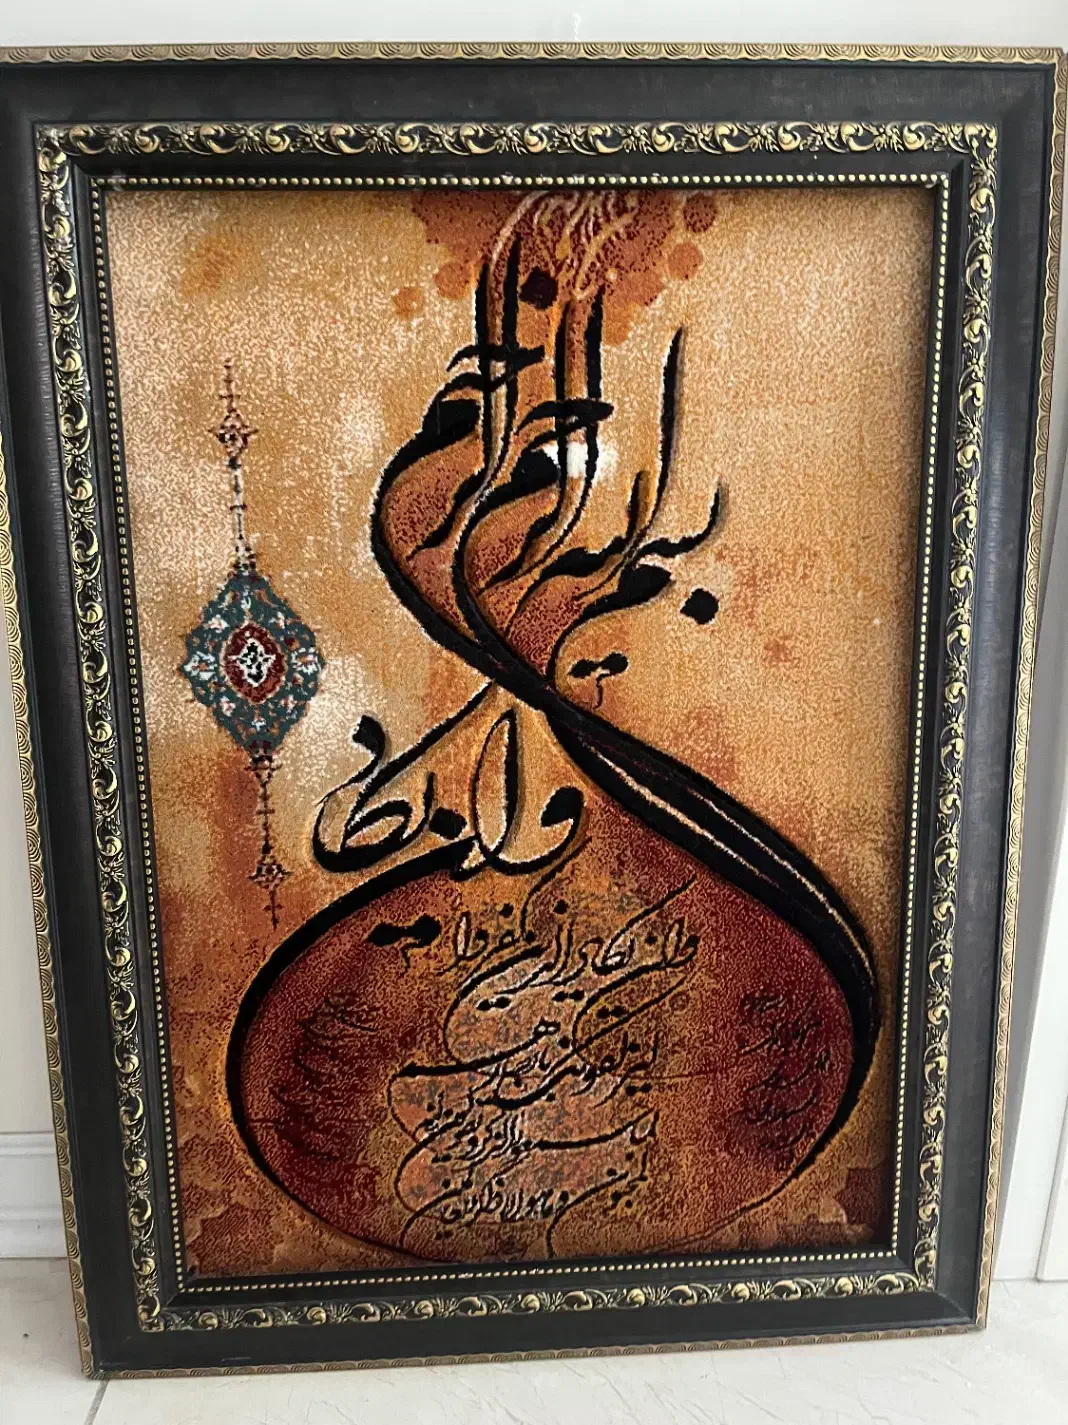 بسم الله الرحمن الرحیم
وان یکاد
وان یکاد الذین کفروا
لیزلقونک بابصارهم
لما سمعوا الذکر و یقولون انه
لمجنون و ما هو الا ذکر للعالمین